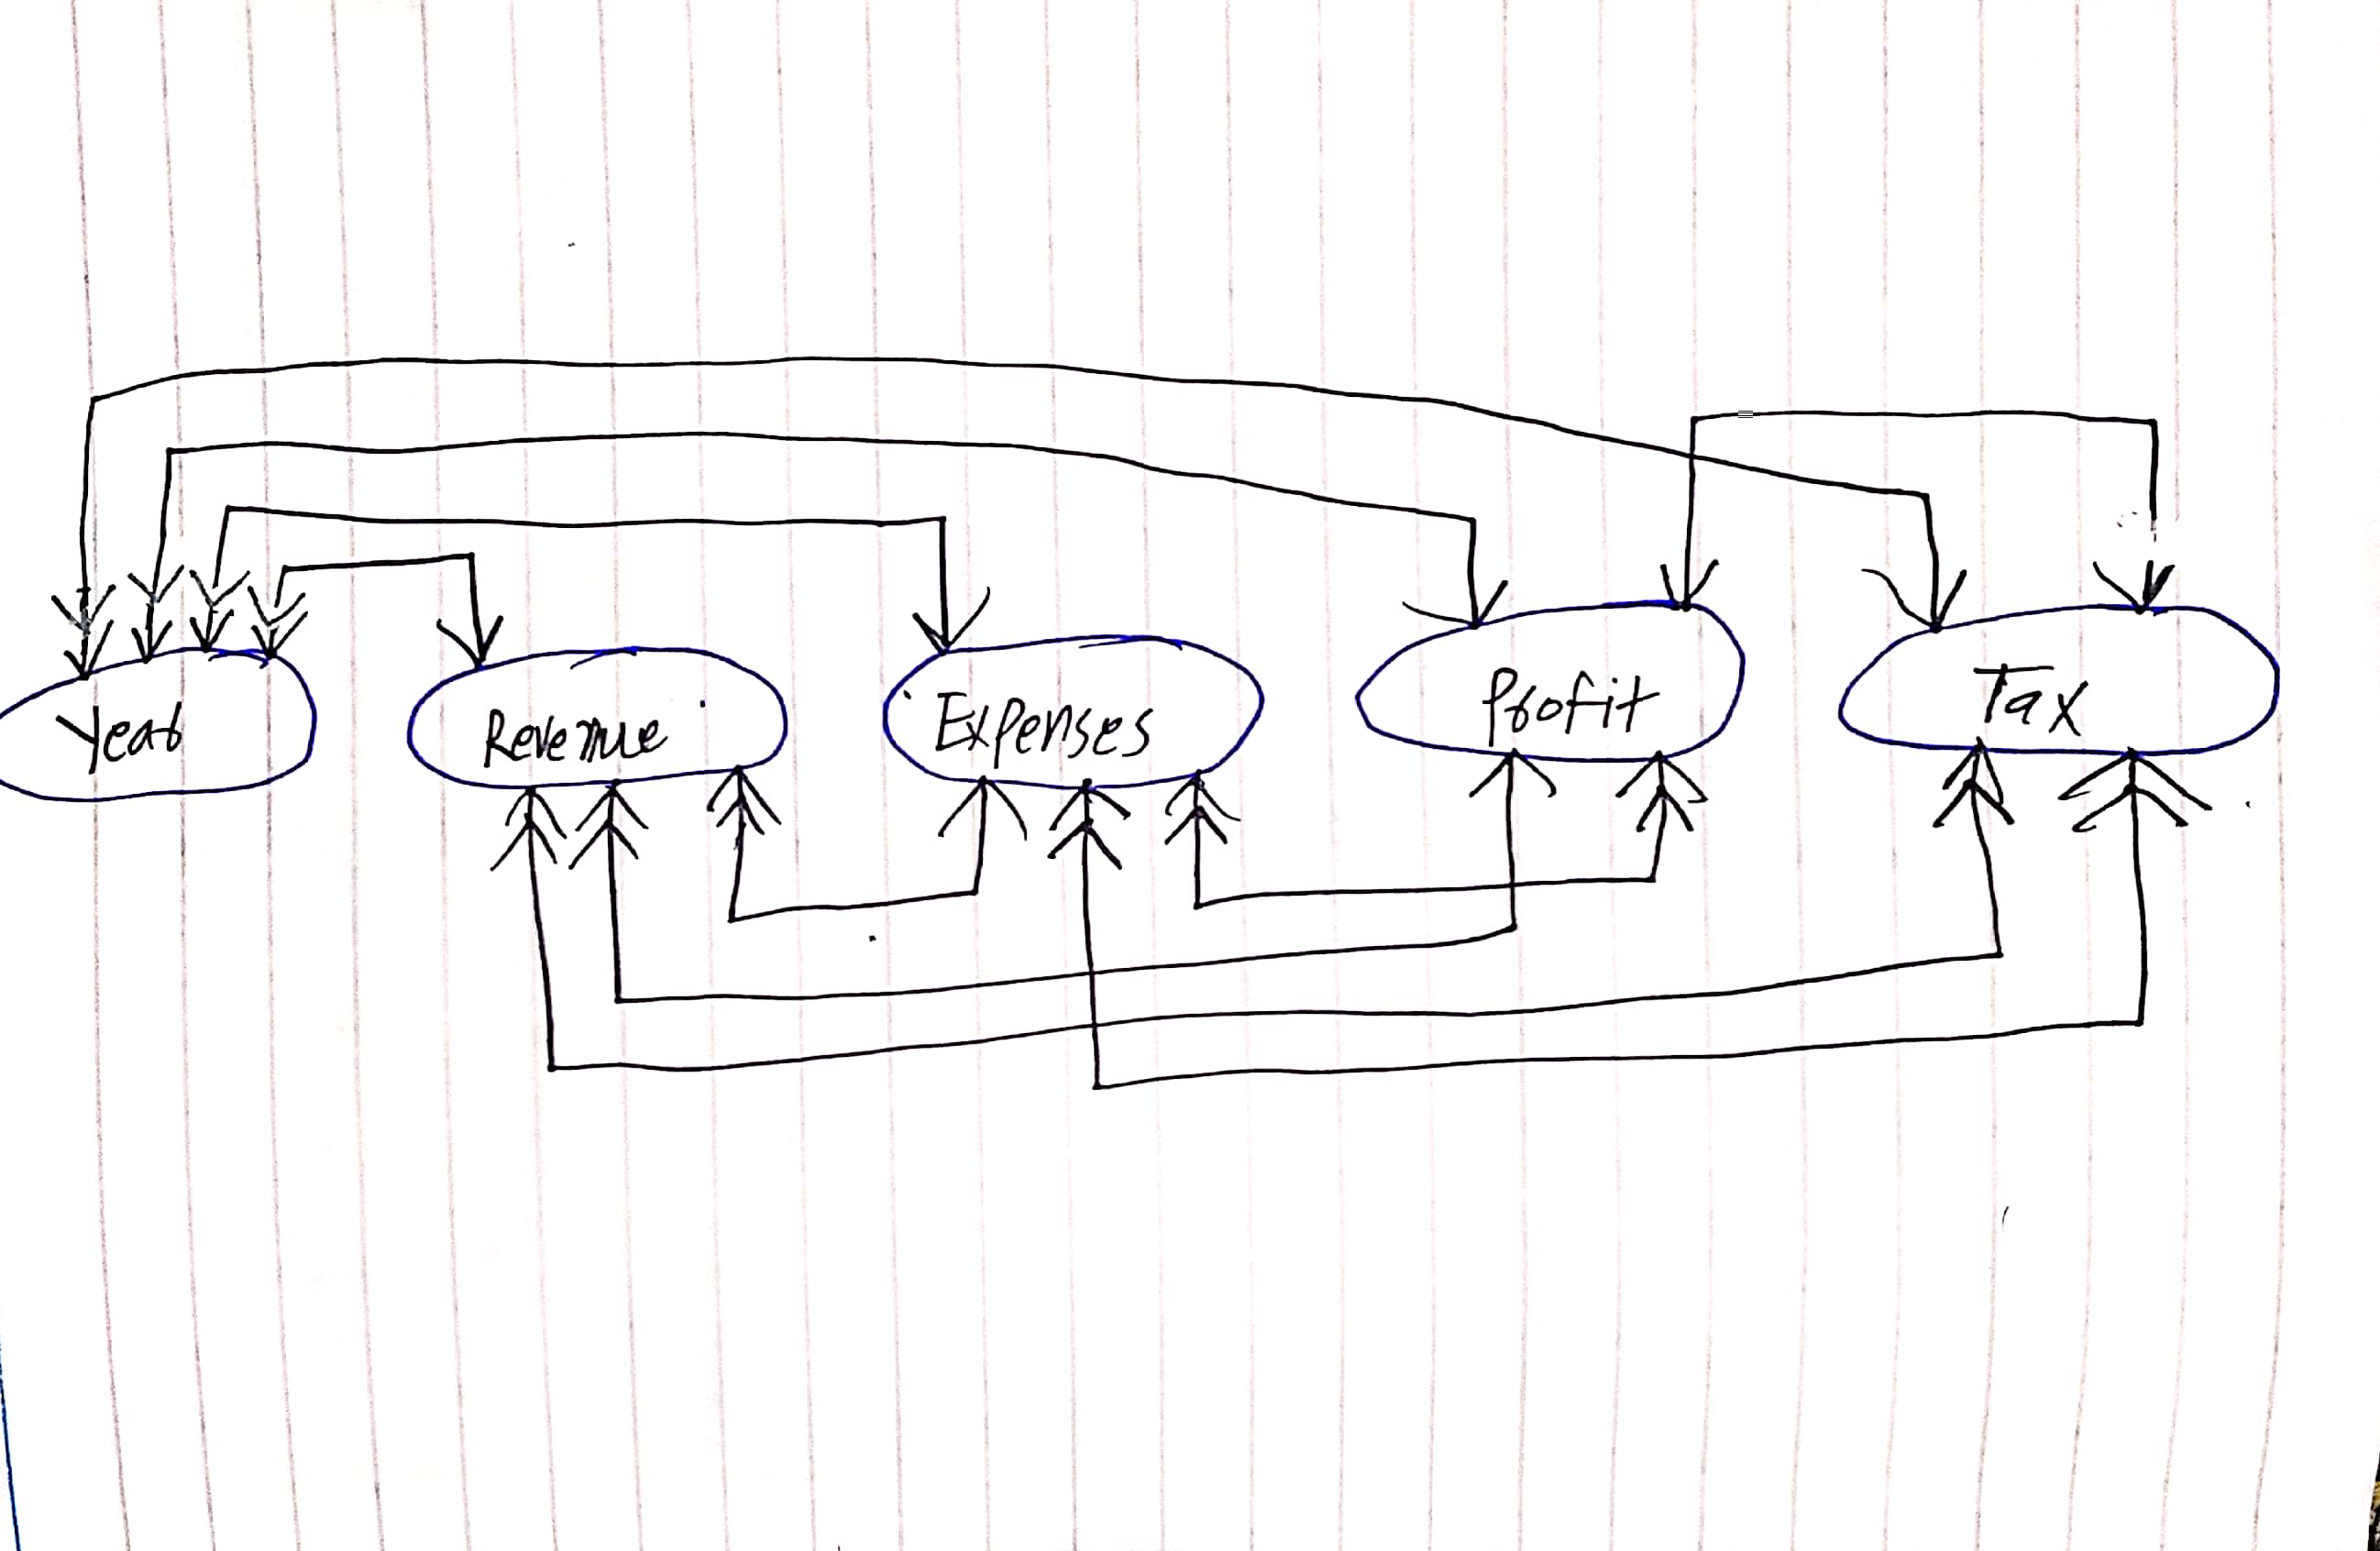 Year
Revenue
Expenses
Profit
Tax